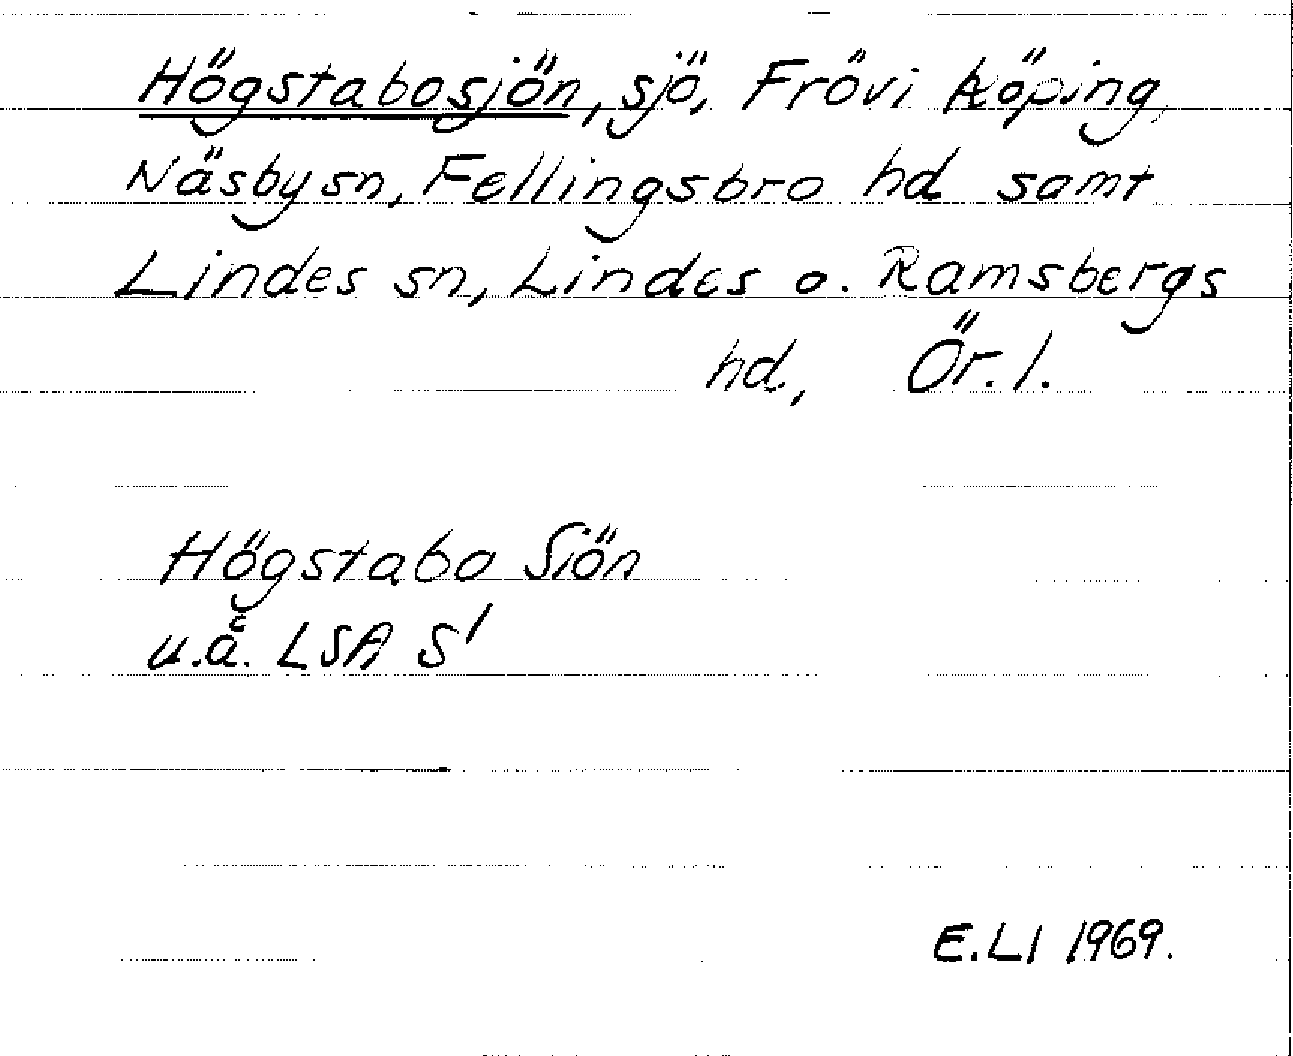 Högstabosjön, sjö, Frövi köping,
Näsby sn, Fellingsbro hd samt
Lindes sn, Lindes o. Ramsbergs
hd, Ör. l.
Högstabo Siön
u.å. LSA S1
E.LI 1969.